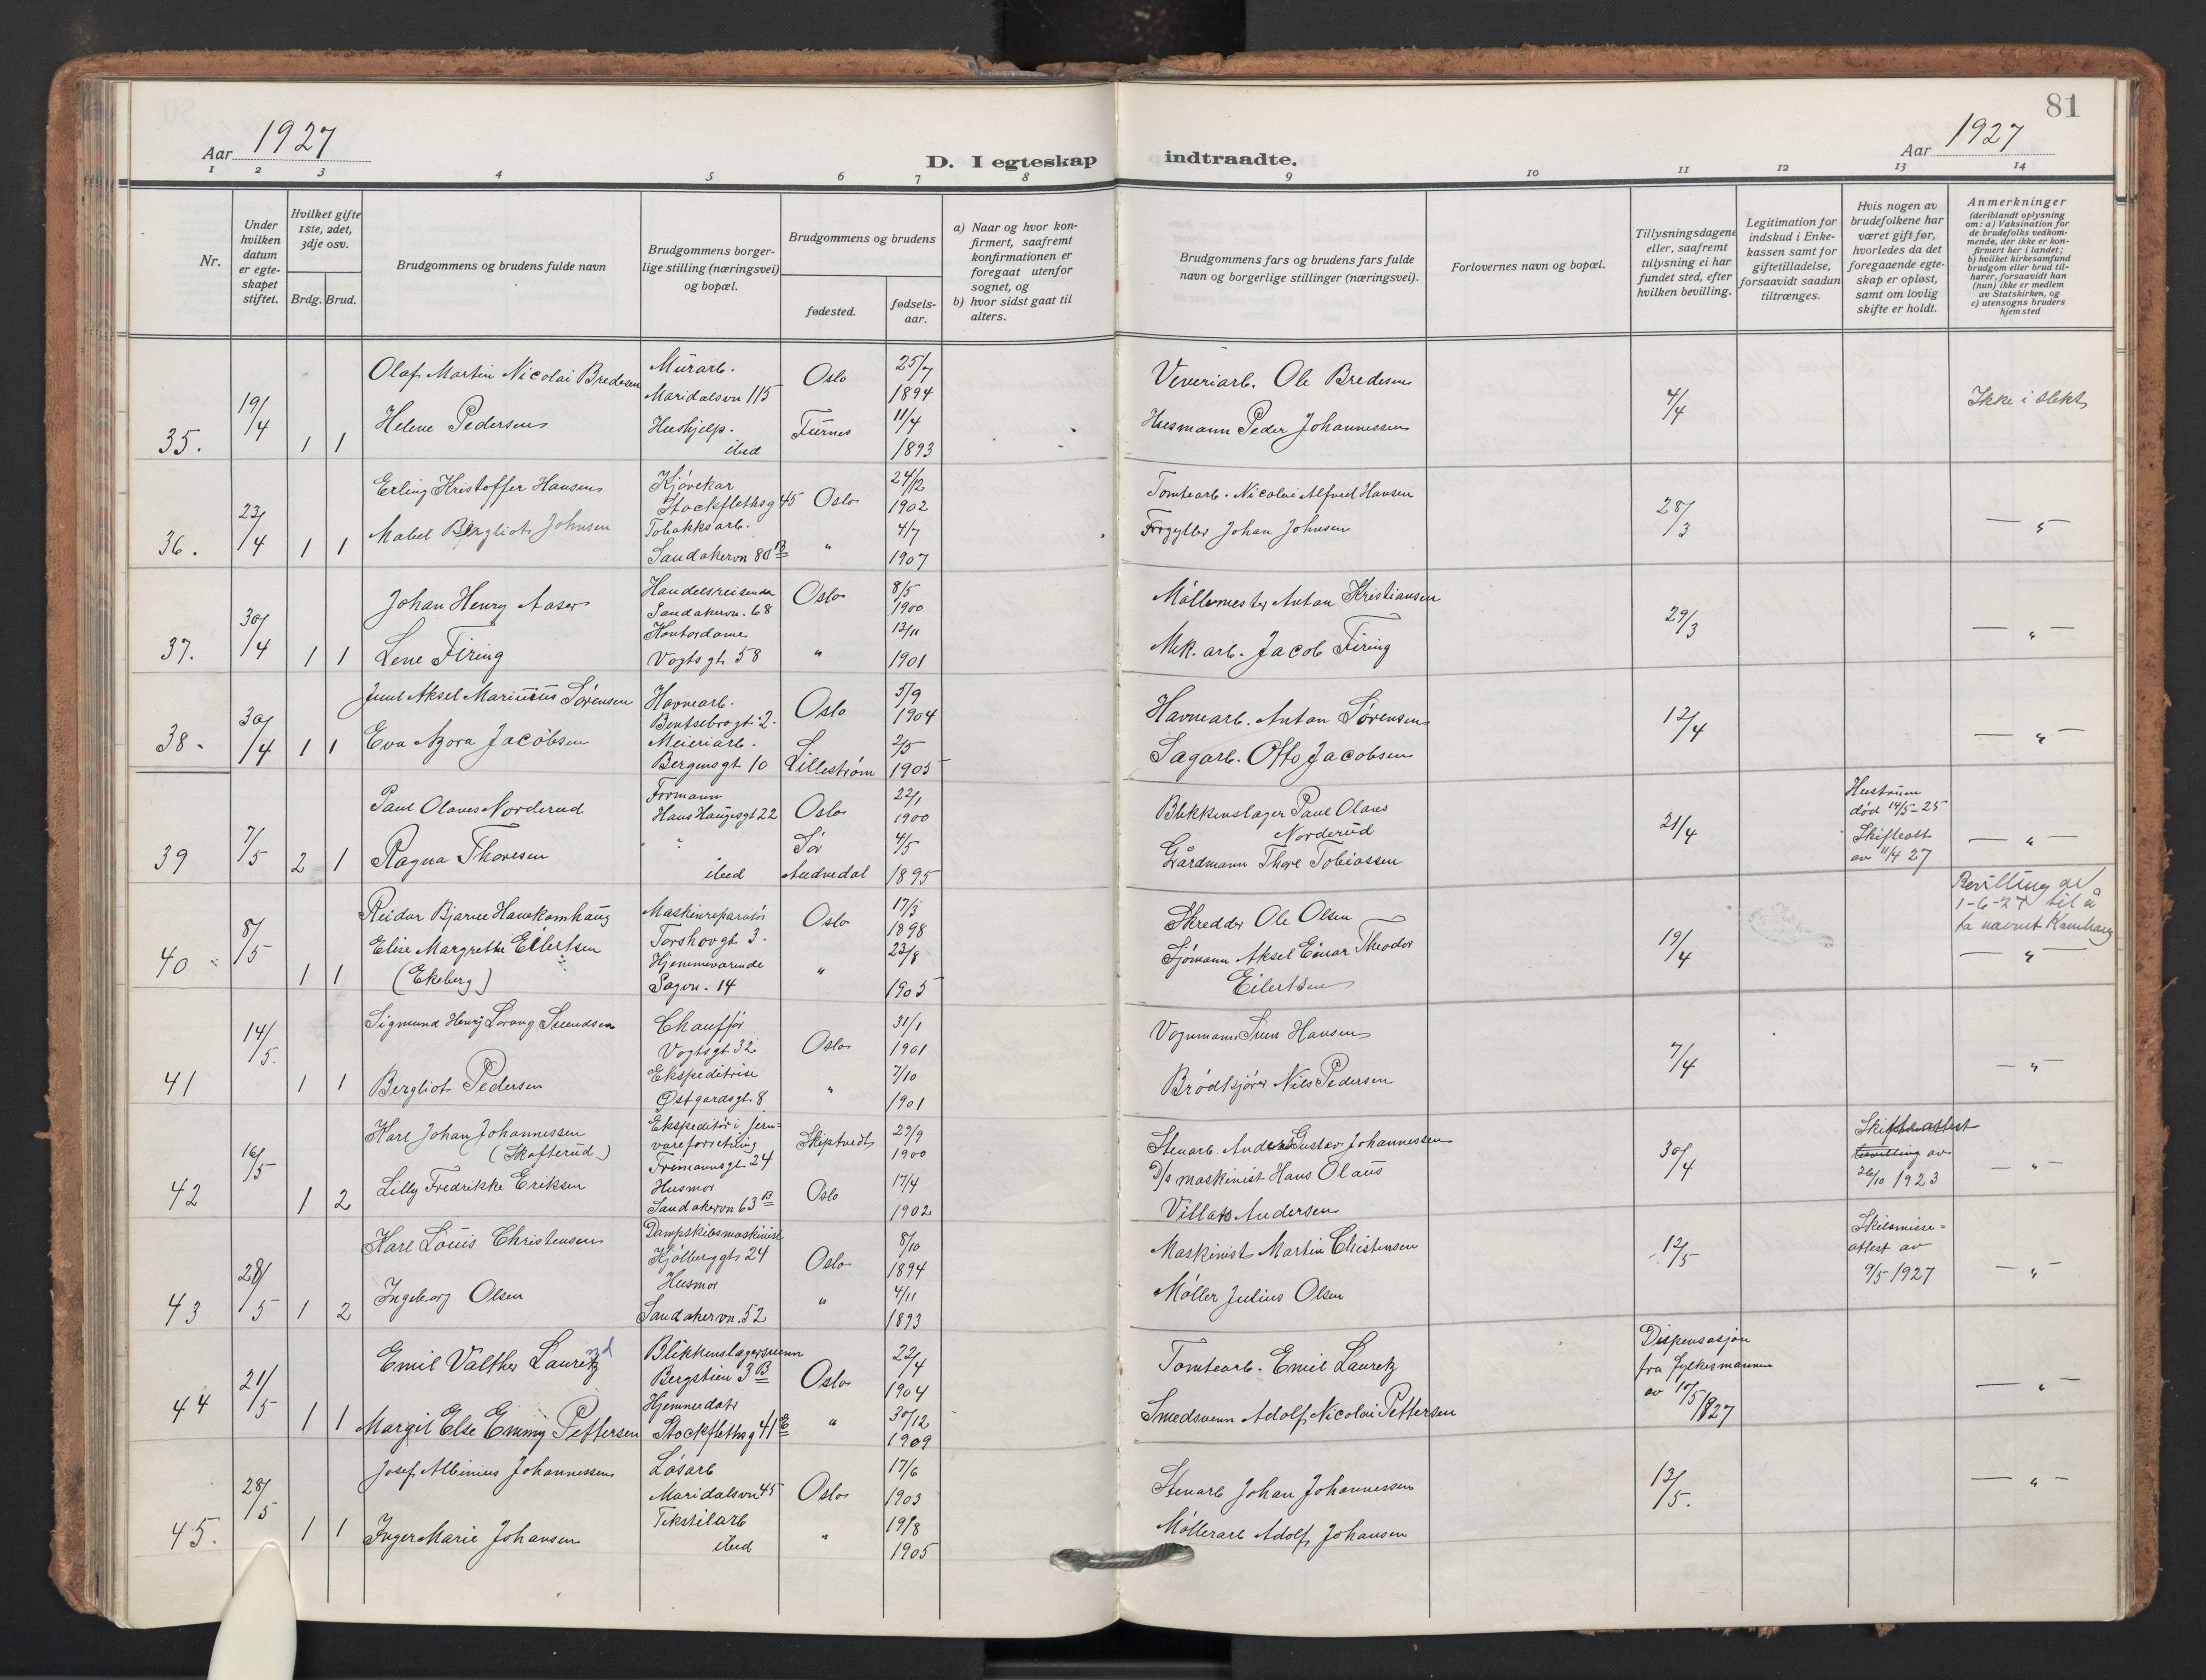 81
Aar 1927
D. I egteskap indtraadte.
Aar 1927
1 2 3 4 5 6 7 8 9 10 11 12 13 14
Nr.
Under hvilken datum er egte-skapet stiftet.
Hvilket gifte 1ste, 2det, 3dje osv.
Brdg. Brud.
Brudgommens og brudens fulde navn
Brudgommens borger-lige stilling (næringsvei) og bopæl.
Brudgommens og brudens
fødested.
fødsels-aar.
a) Naar og hvor kon-firmert, saafremt konfirmationen er foregaat utenfor sognet, og
b) hvor sidst gaat til alters.
Brudgommens fars og brudens fars fulde navn og borgerlige stillinger (næringsvei).
Forlovernes navn og bopæl.
Tillysningsdagene eller, saafremt tillysning ei har fundet sted, efter hvilken bevilling.
Legitimation for indskud i Enke-kassen samt for giftetilladelse, forsaavidt saadan tiltrænges.
Hvis nogen av brudefolkene har været gift før, hvorledes da det foregaaende egte-skap er opløst, samt om lovlig skifte er holdt.
Anmerkninger (deriblandt oplysning om: a) Vaksination for de brudefolks vedkom-mende, der ikke er kon-firmert her i landet; b) hvilket kirkesamfund brudgom eller brud til-hører, forsaavidt han (hun) ikke er medlem av Statskirken, og c) utensogns bruders hjemsted
35. 19/4 1 1
Olaf Martin Nicolai Bredesen Murarb. Maridalsvn 115 Oslo 25/7 1894 Veveriarb. Ole Bredesen 4/4 Ikke i slekt
Helene Pedersen Hushjelp. ibid Furnes 11/4 1893 Husmann Peder Johannessen
36. 23/4 1 1
Erling Kristoffer Hansen Kjørekar Stockflethsg 45 Oslo 24/12 1902 Tomtearb. Nicolai Alfred Hansen 28/3 — " —
Mabel Bergliot Johnsen Tobakksarb. Sandakervn 80 B " 4/7 1907 Forgyller Johan Johnsen
37. 30/4 1 1
Johan Henry Aaser Handelsreisende Sandakervn. 68 Oslo 8/5 1900 Møllemester Anton Kristiansen 29/3 — " —
Lene Firing Kontordame Vogtsgt 58 " 13/11 1901 Mek. arb. Jacob Firing
38. 30/4 1 1
Juul Aksel Marinius Sørensen Havnearb. Bentsebrogt. 2. Oslo 5/9 1904 Havnearb. Anton Sørensen 12/4 — " —
Eva Azora Jacobsen Meieriarb. Bergensgt 10 Lillestrøm 2/5 1905 Sagarb. Otto Jacobsen
39 7/5 2 1
Paul Olaves Norderud Formann Hans Haugesgt 22 Oslo 22/1 1900 Blikkenslager Paul Olaves Norderud 21/4 Hustruen død 14/5-25 Skifteatt av 11/4 27 — " —
Ragna Thoresen " ibid Sør Audnedal 4/5 1895 Gårdmann Thore Tobiassen
40 8/5 1 1
Reidar Bjarne Hanekamhaug Maskinreparatør Torshovgt 3. Oslo 17/3 1898 Skredder Ole Olsen 19/4 Bevilling av 1-6-27 til å ta navnet Kamhaug — " —
Elise Margrethe Eilertsen (Ekeberg) Hjemmeværende Sagvn. 14 " 23/8 1905 Sjømann Aksel Einar Theodor Eilertsen
41 14/5. 1 1
Sigmund Henry Lorang Svendsen Chauffør Vogtsgt 32 Oslo 31/1 1901 Vognmann Sven Hansen 7/4 — " —
Bergliot Pedersen Ekspeditrise Østgaardsgt 8 " 7/10 1901 Brødkjører Nils Pedersen
42 16/5 1 2
Karl Johan Johannessen (Skofterud) Ekspeditør i jern-vareforretning Frimannsgt 24 Skiptvedt 29/9 1900 Stenarb. Anders Gustav Johannessen 30/4 Skifteattest bevilling av 26/10 1923 — " —
Lilly Fredrikke Eriksen Husmor Sandakervn 63 B Oslo 17/4 1902 D/s maskinist Hans Olaus Andersen
43 28/5 1 2
Karl Louis Christensen Dampskibsmaskinist Kjølberggt 24 Oslo 8/10 1894 Maskinist Martin Christensen 12/5 Skilsmisse-attest av 9/5 1927 — " —
Ingeborg Olsen Husmor Sandakervn. 52 " 4/11 1893 Møller Julius Olsen
44 21/5 1 1
Emil Valther Lauretz Blikkenslagersvenn Bergstien 3 B Oslo 22/4 1904 Tomtearb. Emil Lauretz Dispensasjon fra fylkesmannen av 10/5 1927 — " —
Margit Else Emmy Pettersen Hjemmedatr Stockflethsg 41 E " 30/12 1909 Smedsvenn Adolf Nicolai Pettersen
45. 28/5 1 1
Josef Albinius Johannessen Løsarb Maridalsvn 45 Oslo 17/6 1903 Stenarb Johan Johannessen 13/5. — " —
Inger Marie Johansen Tekstilarb ibid " 19/8 1905 Møllerarb Adolf Johansen